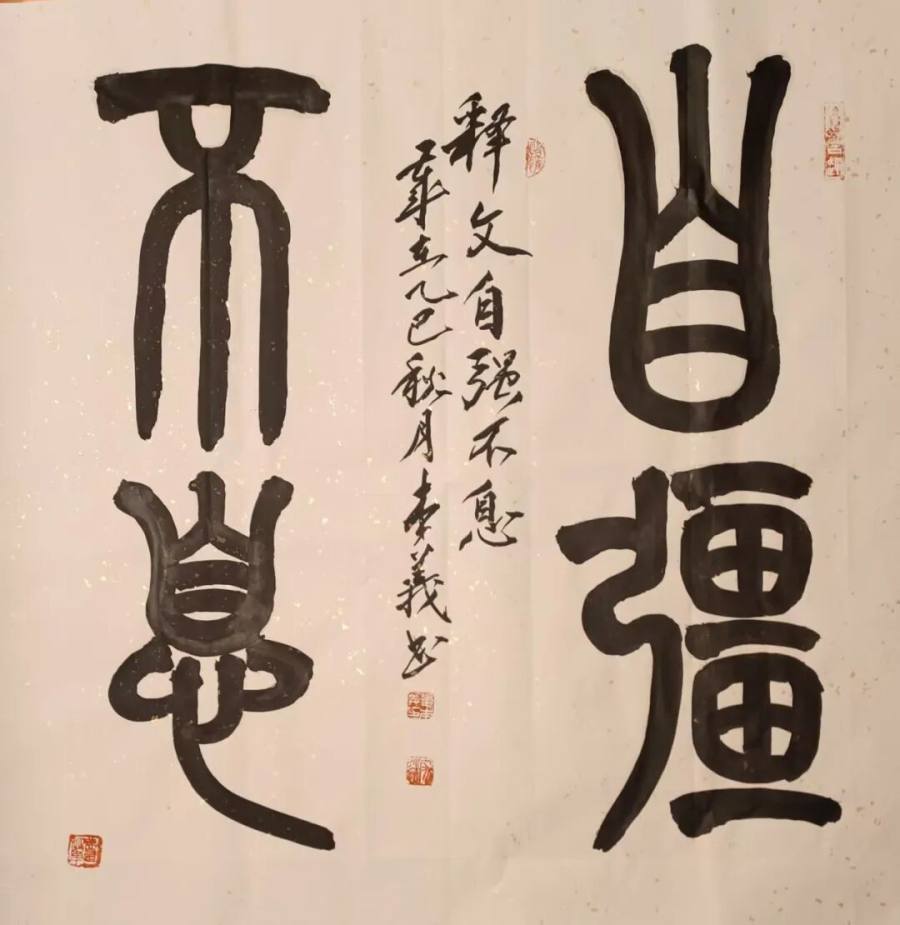 自彊
不息
释文自强不息
歲在乙巳秋月李義书